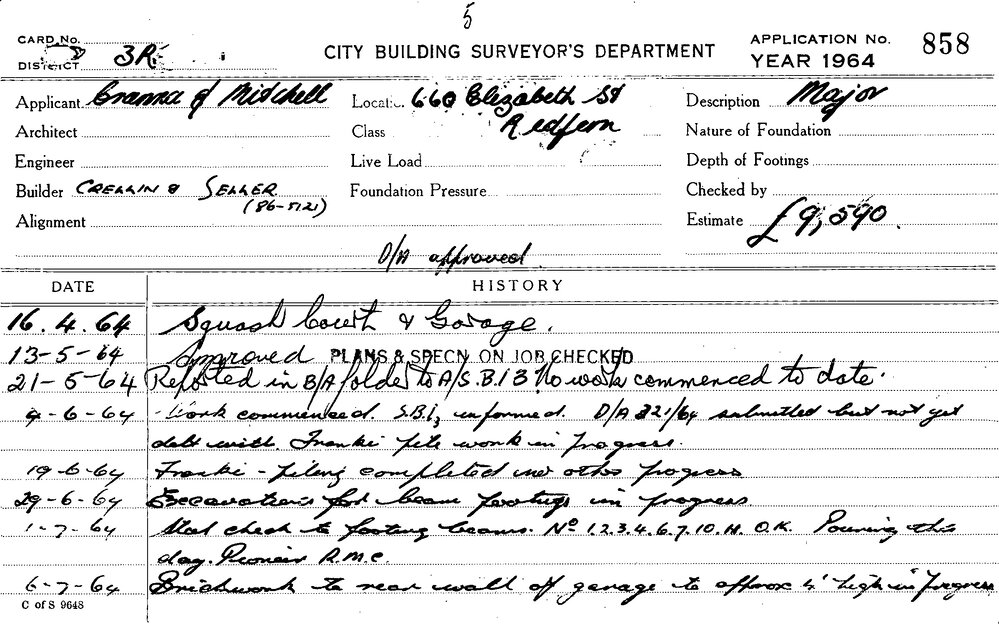 5
CARD No.
DISTRICT 3R
CITY BUILDING SURVEYOR'S DEPARTMENT
APPLICATION No. 858
YEAR 1964
Applicant Cranna & Mitchell
Location 660 Elizabeth St
Redfern
Description Major
Architect
Class
Nature of Foundation
Engineer
Live Load
Depth of Footings
Builder CRELLIN & SELLER
(86-5121)
Foundation Pressure
Checked by
Alignment
Estimate £9,590.
D/A approved.
DATE HISTORY
16.4.64 Squash Court & Garage.
13-5-64 Approved PLANS & SPECN ON JOB CHECKED
21-5-64 Reported in B/A folder to A/S.B.I 3 No work commenced to date.
9-6-64 Work commenced. S.B.I3 informed. D/A 321/64 submitted but not yet
delt with. Franki pile work in progress.
19-6-64 Franki - piling completed no other progress
29-6-64 Excavations for beam footings in progress
1-7-64 Steel check to footing beams. No 1.2.3.4.6.7.10.11. O.K. Pouring this
day. Pioneer R.M.C.
6-7-64 Brickwork to rear wall of garage to approx 4' high in progress
C of S 9648